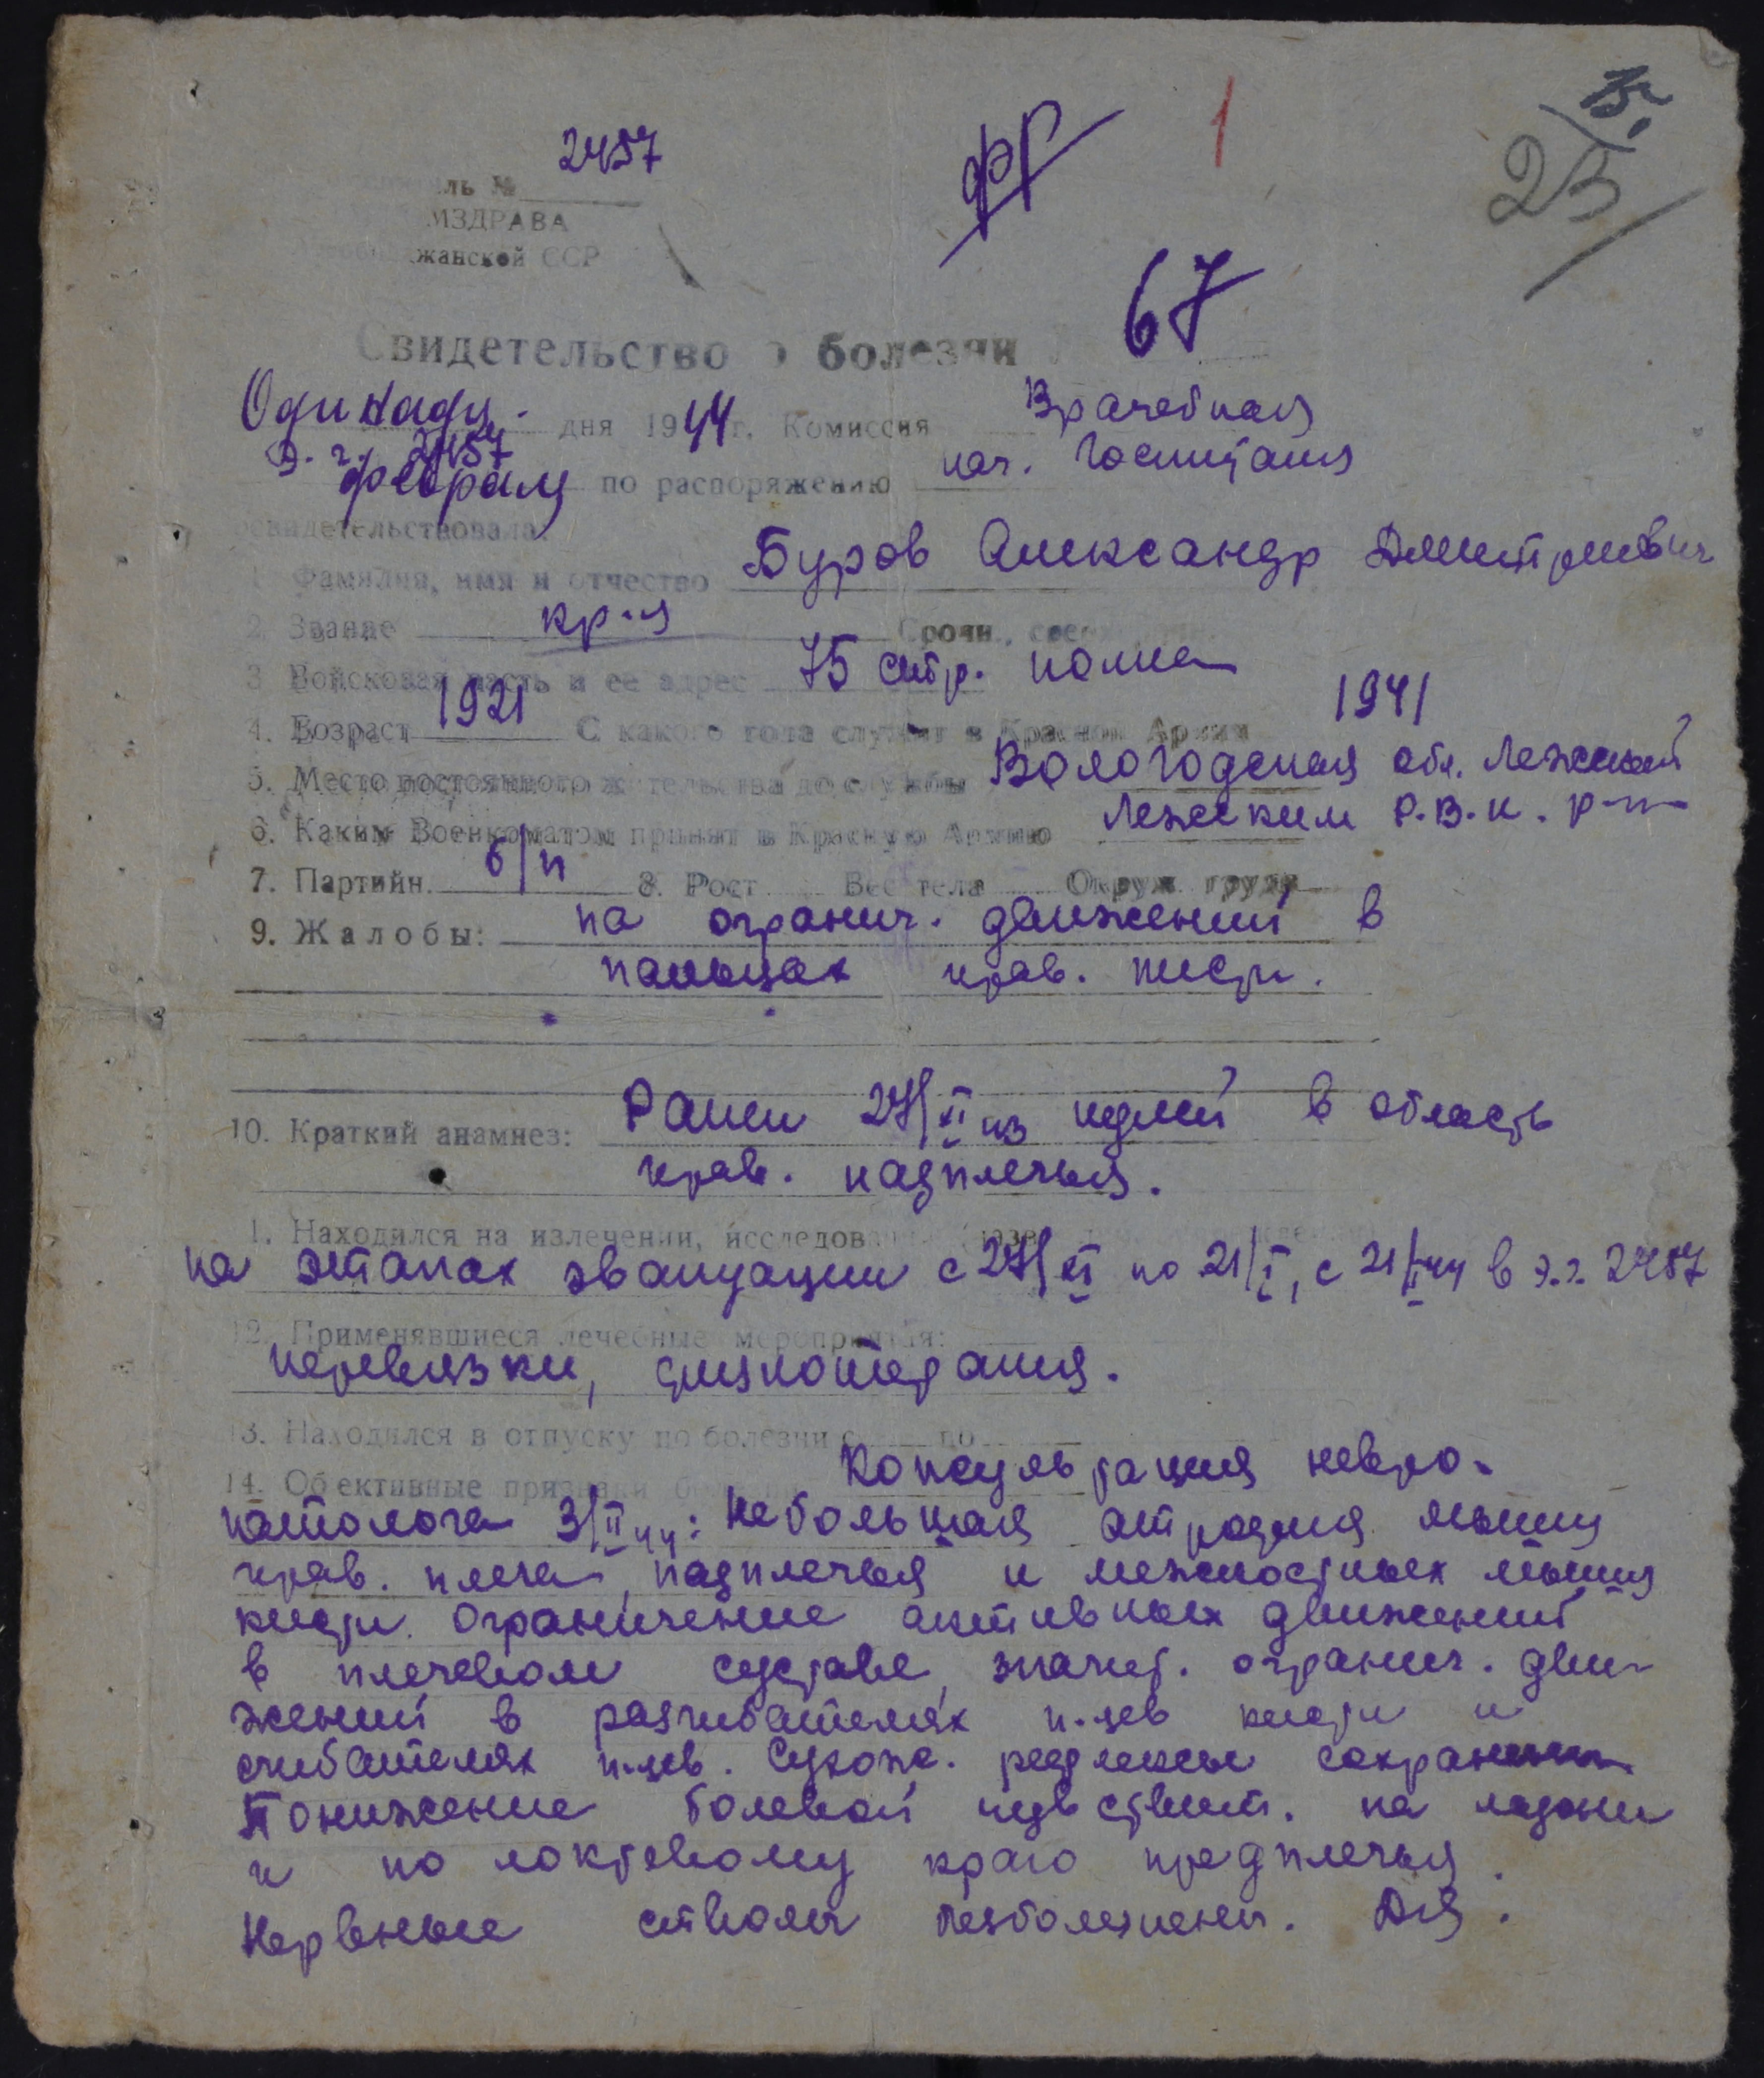 15.
23
1
фр
2457
ль №
МЗДРАВА
жанской ССР
Свидетельство о болезни 67
Одинадц. дня 1944 г. Комиссия Врачебная
э. г. 2457
февраля по распоряжению нач. госпиталя
свидетельствовала:
1. Фамилия, имя и отчество Буров Александр Дмитриевич
2. Звание кр-ц Срочн.,
3. Войсковая часть и ее адрес 75 стр. полка
4. Возраст 1921 С какого года служит в Красной Армии 1941
5. Место постоянного жительства до службы Вологодская обл. Лежский
6. Каким Военкоматом принят в Красную Армию Лежским Р.В.К. р-н
7. Партийн. б/п 8. Рост Вес тела Окруж. груди
9. Жалобы: на огранич. движений в
пальцах прав. кисти.
10. Краткий анамнез: Ранен 27/XI 43 пулей в область
прав. надплечья.
1. Находился на излечении, исследов
на этапах эвакуации с 27/XI по 21/I, с 21/I 44 в э.г. 2457
12. Применявшиеся лечебные мероприятия:
перевязки, физиотерапия.
13. Находился в отпуску по болезни с по
14. Обективные признаки Консультация невро-
патолога 3/II 44: Небольшая атрофия мышц
прав. плеча, надплечья и межкостных мышц
кисти. Ограничение активных движений
в плечевом суставе, значит. огранич. дви-
жений в разгибателях п-цев кисти и
сгибателях п-цев. Сухож. рефлексы сохранены
Понижение болевой чувствит. на ладони
и по локтевому краю предплечья.
Нервные стволы безболезнены. Дз: